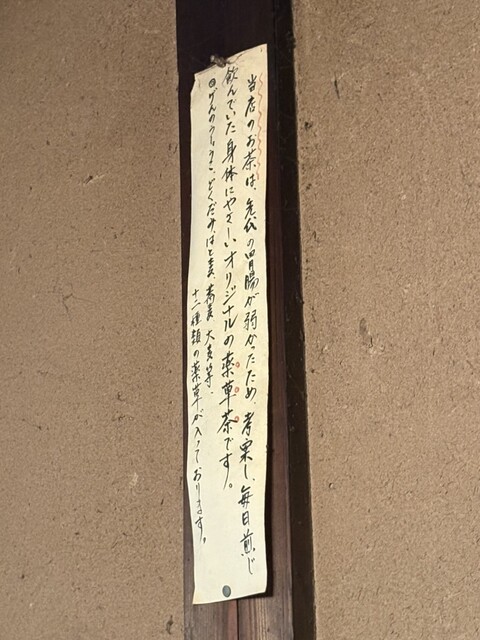 当店のお茶は、先代の胃腸が弱かったため、考案し、毎日煎じ
飲んでいた身体にやさしいオリジナルの薬草茶です。
◎げんのしょうこ、どくだみ、はと麦、蕎麦、大麦等、
十二種類の薬草が入っております。